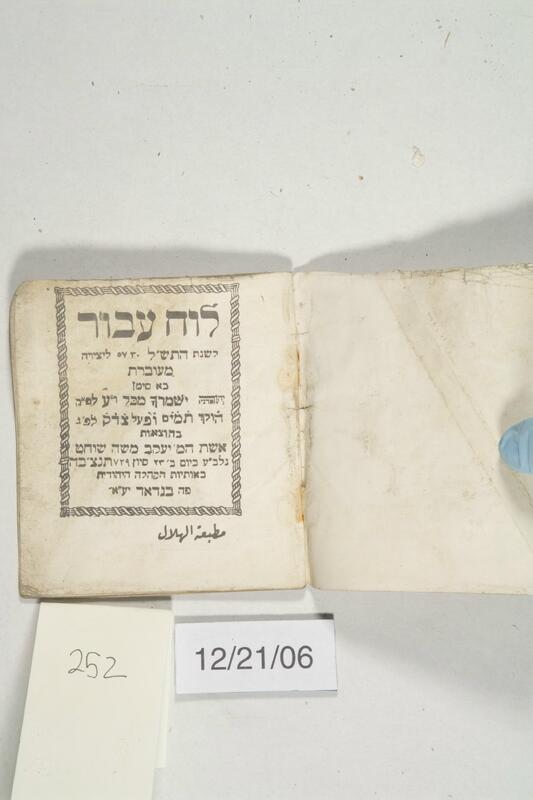 לוח עבור
לשנת התש״ל ‎٥٧٣٠ ליצירה
מעוברת
בא סימן
ישמרך מכל רע לפ״ק
הולך תמים ופעל צדק לפ״ג
בהוצאות
אשת המ׳ יעקב משה שוחט
נלב״ע ביום ב׳ ٢٣ סיון ٧٢٩ תנצ״בה
באותיות הקהלה היהודית
פה בגדאד יע״א
مطبعة الهلال
252
12/21/06